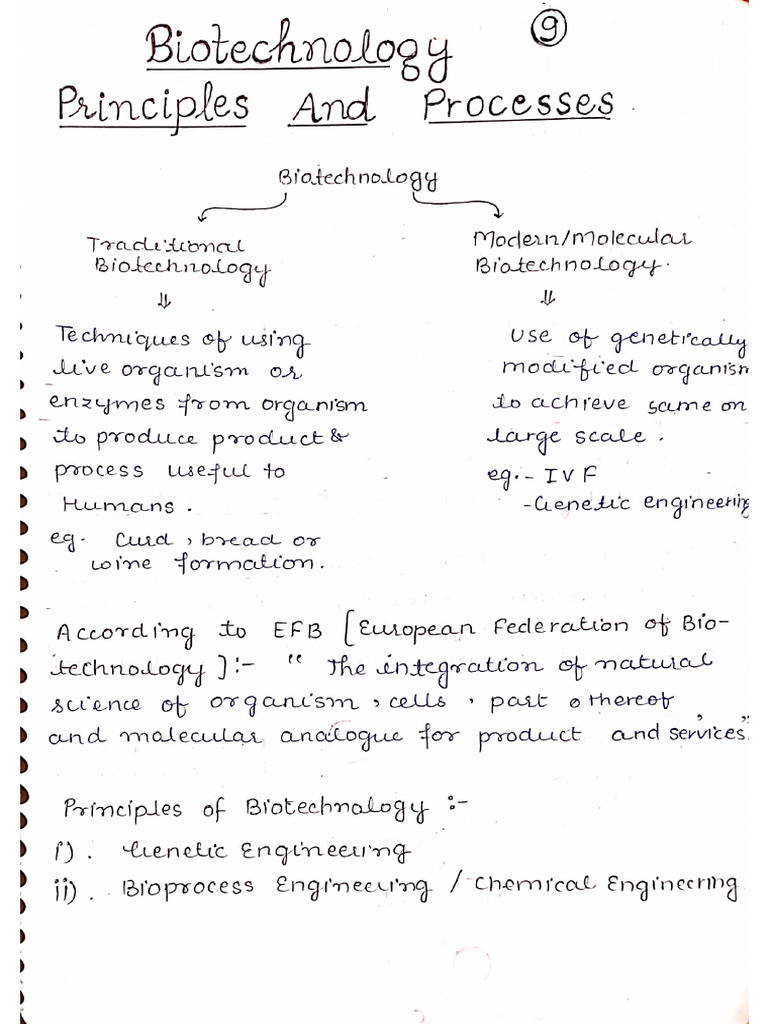 Biotechnology 9
Principles And Processes.
Biotechnology
Traditional
Biotechnology
⇓
Techniques of using
live organism or
enzymes from organism
to produce product &
process useful to
Humans.
eg. Curd, bread or
wine formation.
Modern/Molecular
Biotechnology.
⇓
Use of genetically
modified organism
to achieve same on
large scale.
eg. - IVF
- Genetic engineering
According to EFB [European Federation of Bio-
technology] :- " The integration of natural
science of organism, cells, part thereof
and molecular analogue for product and services"
Principles of Biotechnology :-
i). Genetic Engineering
ii). Bioprocess Engineering / Chemical Engineering